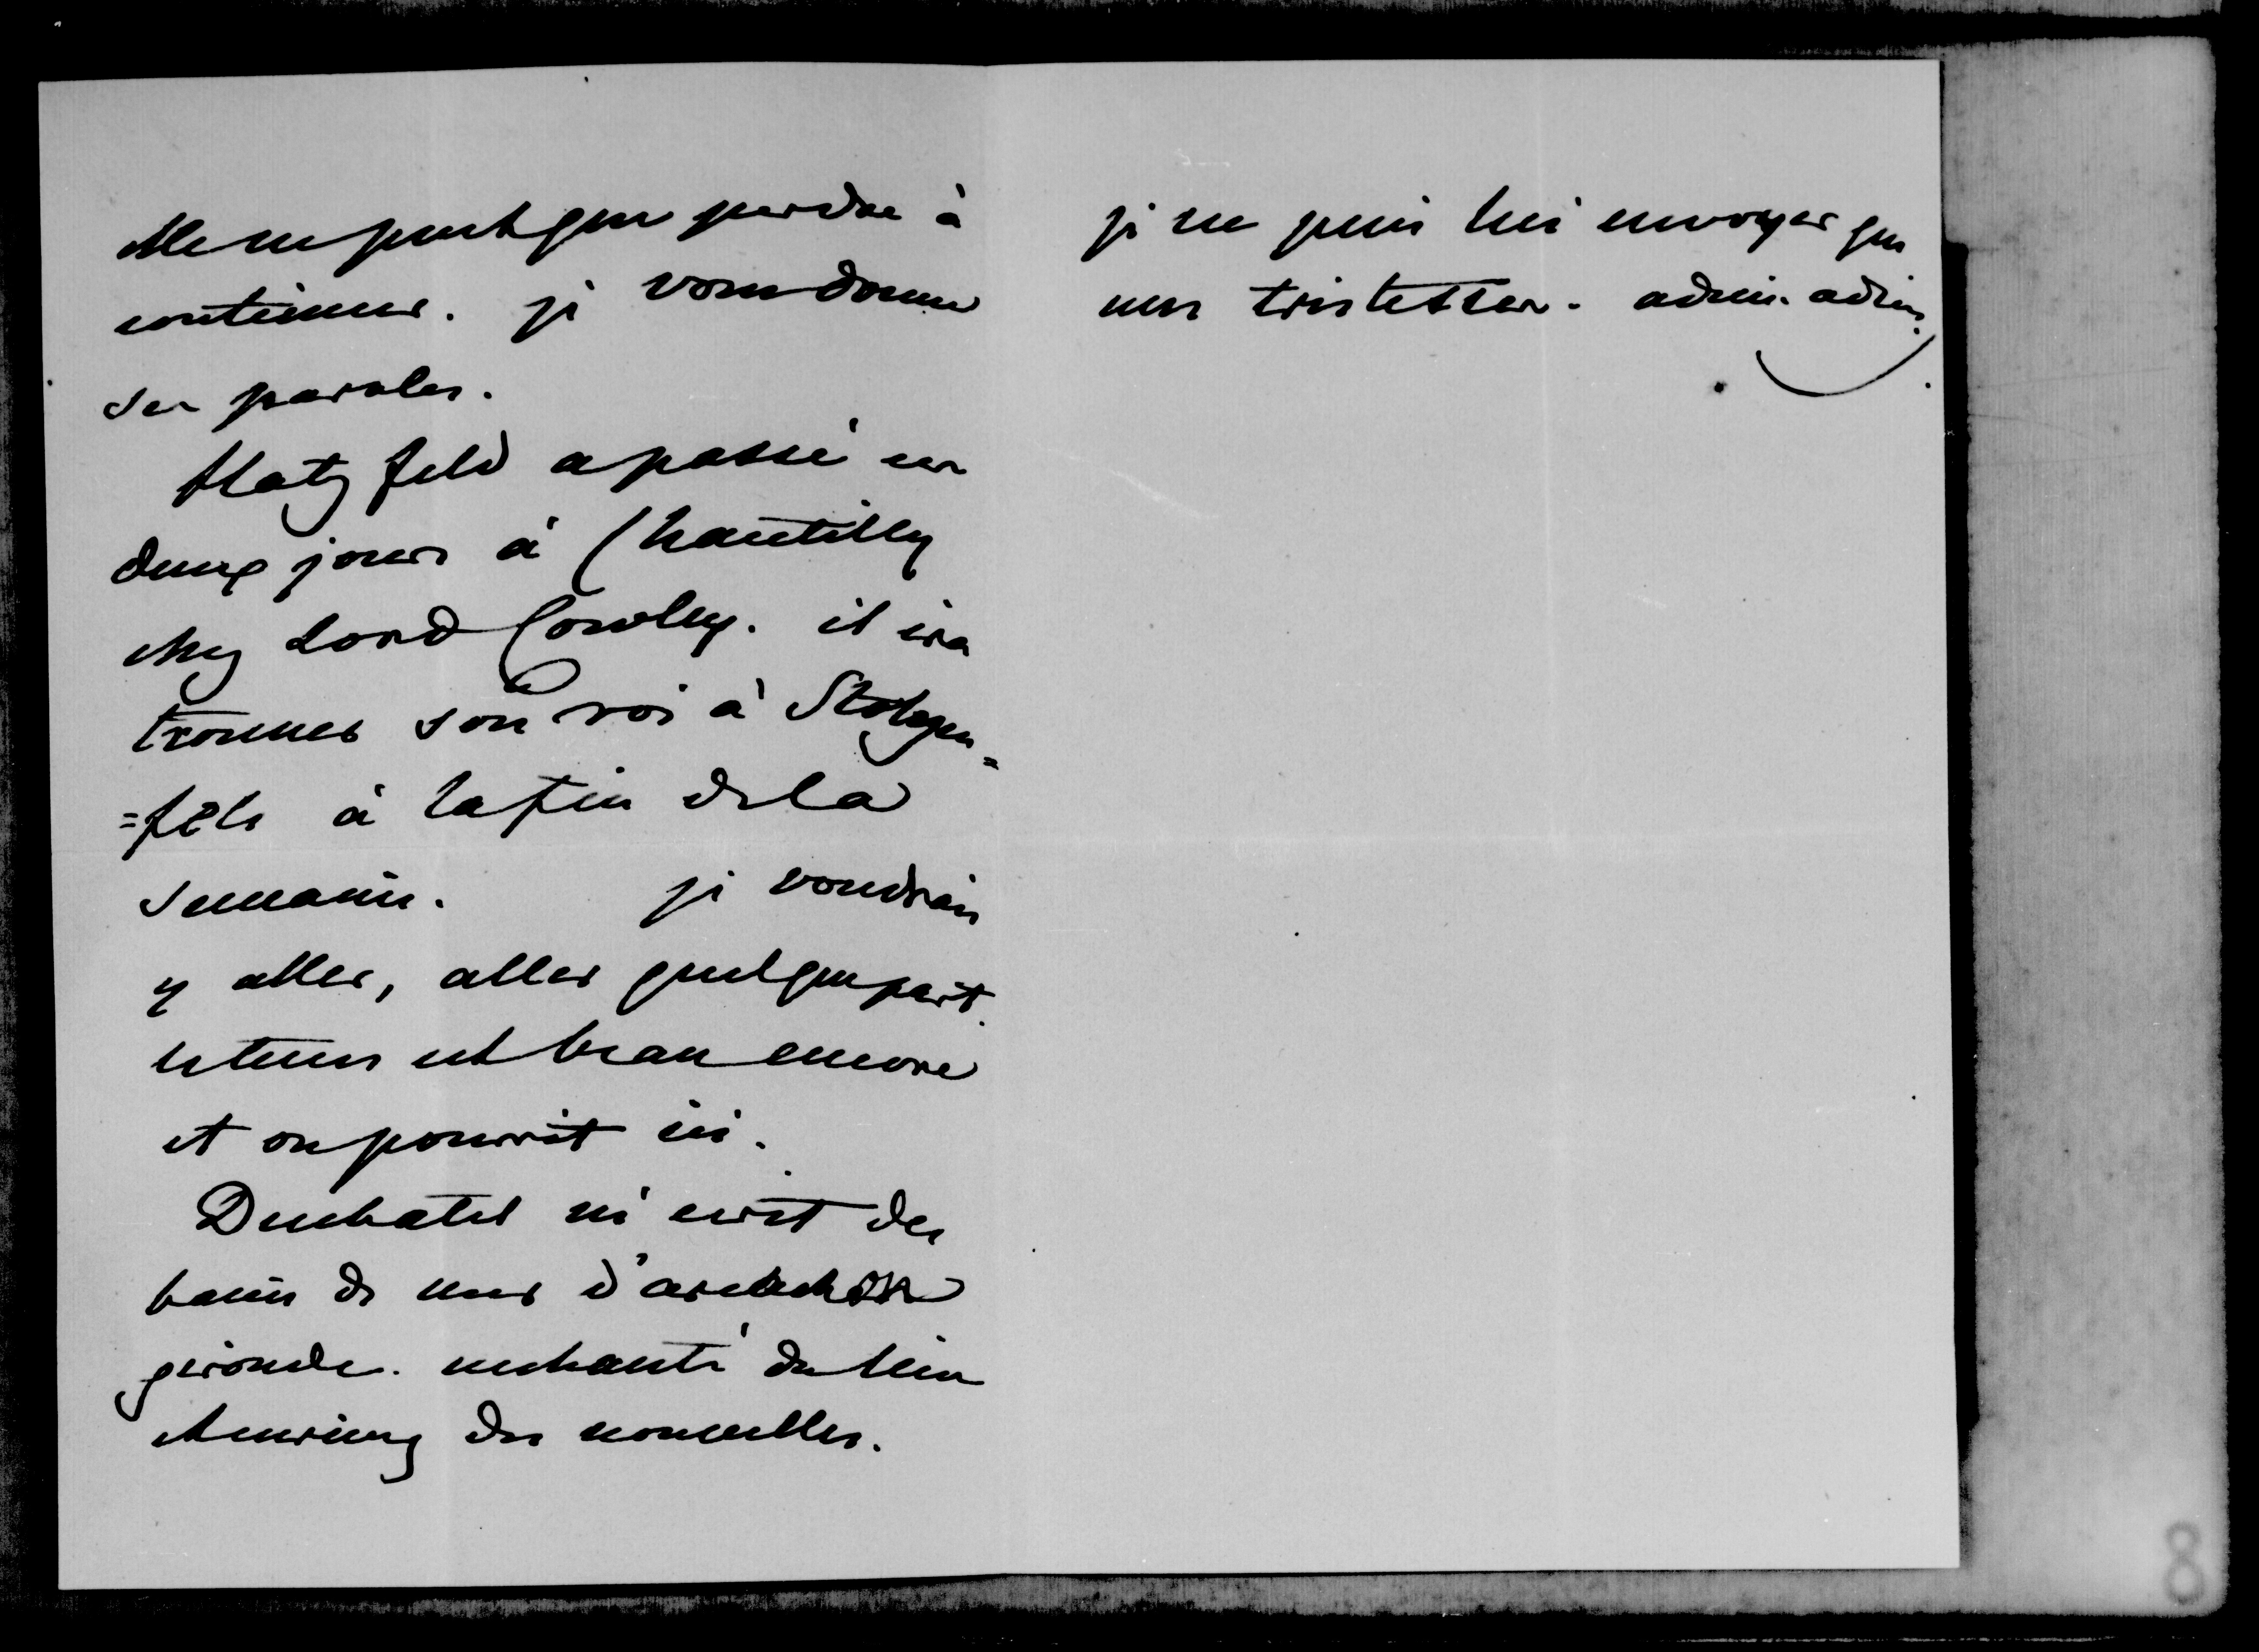 elle ne peut que perdre à
continuer. je vous donne
ses paroles.
Hatzfeld a passé ces
deux jours à Chantilly
chez Lord Cowley. il ira
trouver son roi à Stolzen=
=fels à la fin de la
semaine. je voudrais
y aller, aller quelque part.
le tems est beau encore
et on pourrit ici.
Duchatel m'écrit des
bains de mer d'arcachon
gironde. enchanté du lieu
et curieux des nouvelles.
je ne puis lui envoyer que
mes tristesses. adieu. adieu.
8